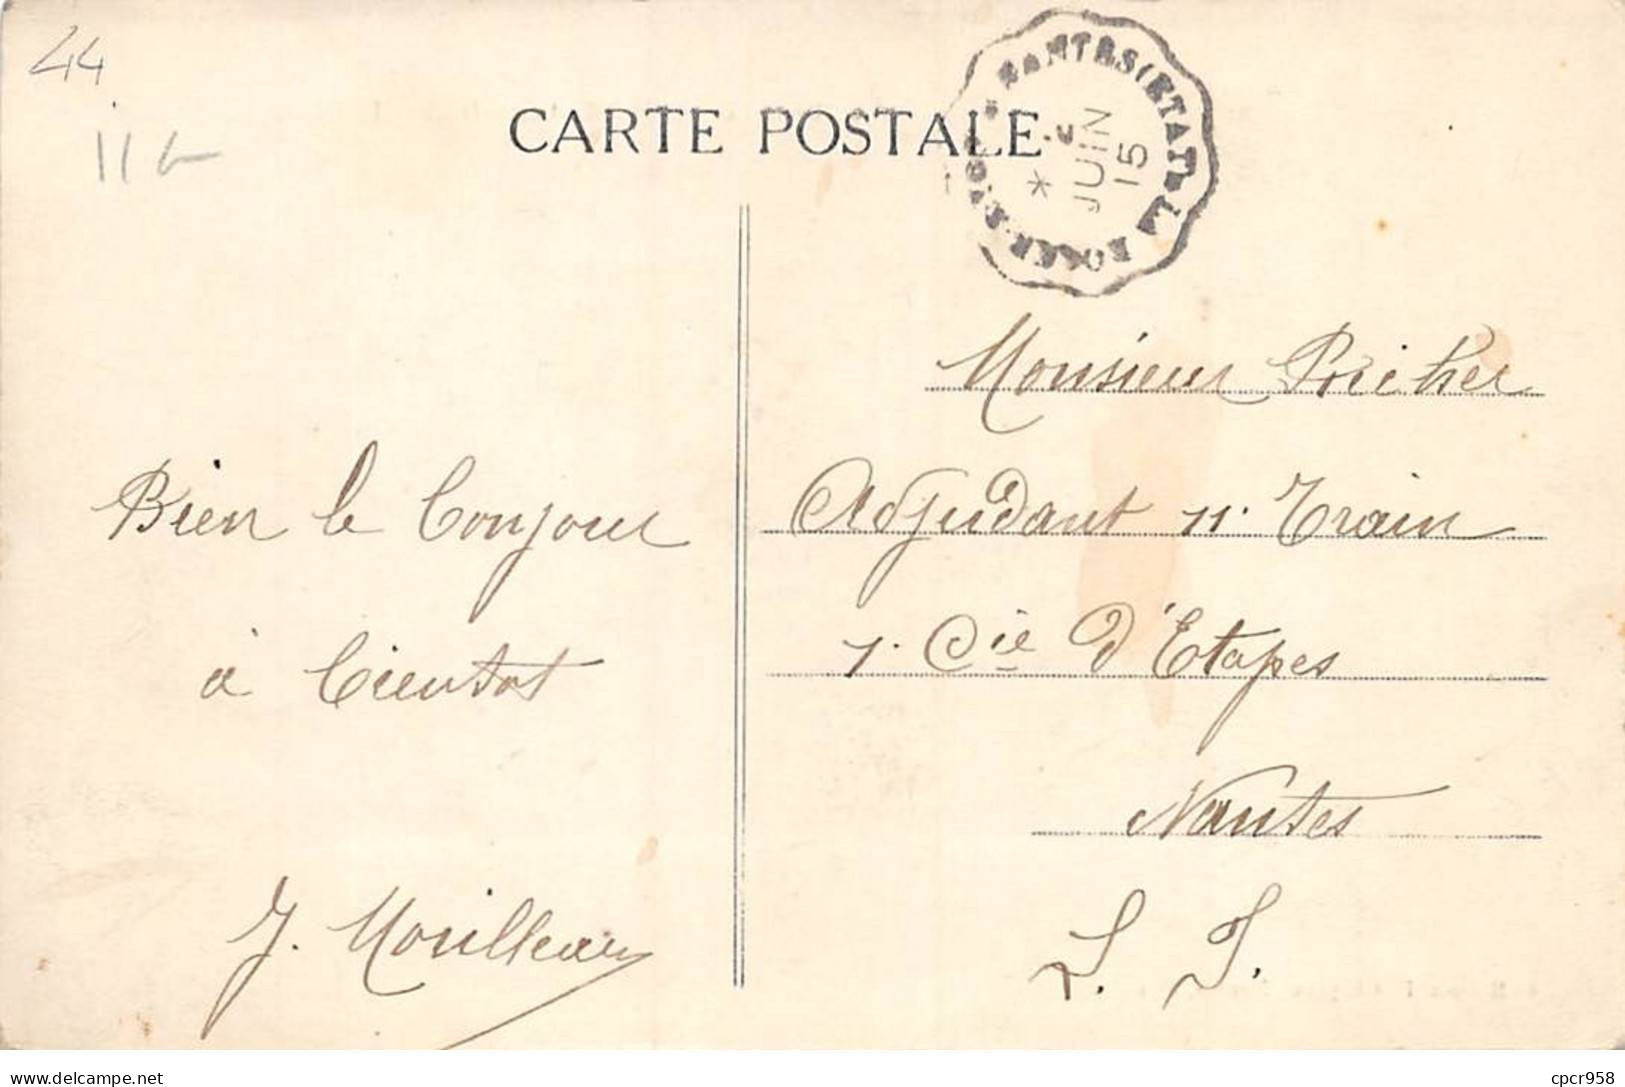 44
CARTE POSTALE
NANTES (ETAT) LA ROCHE-S-YON
JUIN
15
Bien le bonjour
à bientot
J. Mouilleau
Monsieur Pricher
Adjudant 11. Train
1. Cie d'Etapes
Nantes
L. I.
delcampe.net
cpcr958